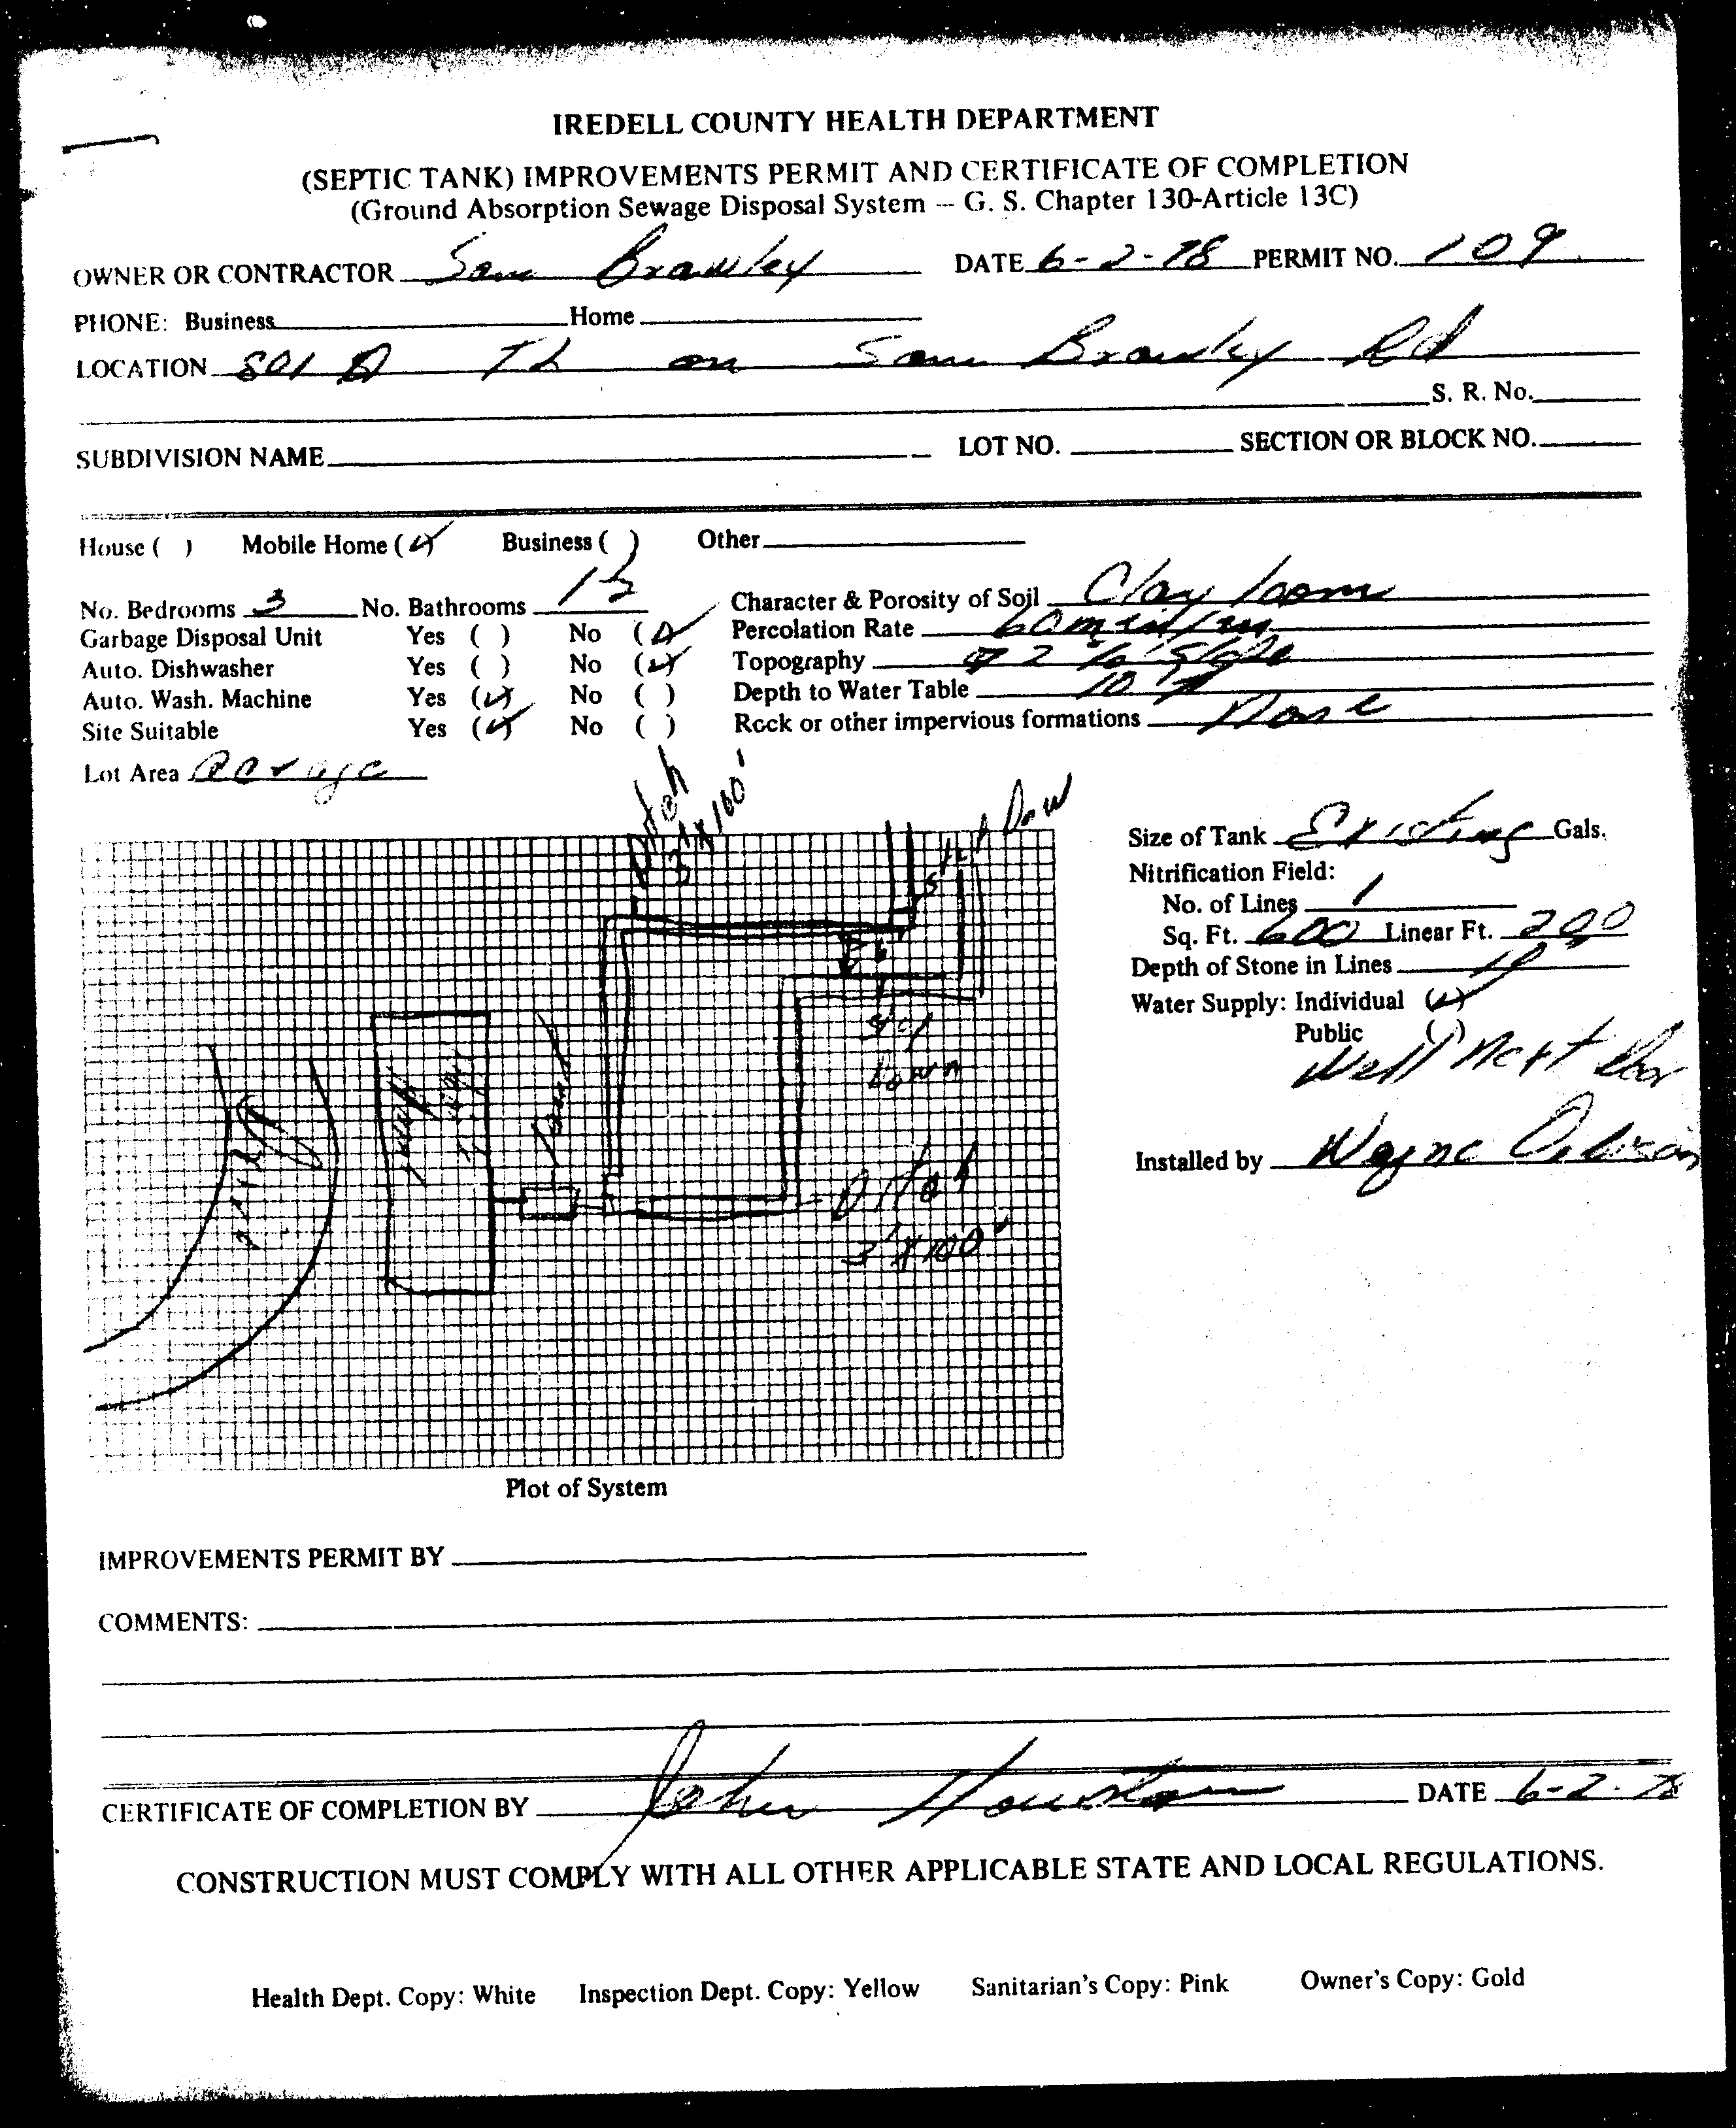 IREDELL COUNTY HEALTH DEPARTMENT
(SEPTIC TANK) IMPROVEMENTS PERMIT AND CERTIFICATE OF COMPLETION
(Ground Absorption Sewage Disposal System -- G. S. Chapter 130-Article 13C)
OWNER OR CONTRACTOR Sam Brawley DATE 6-2-78 PERMIT NO. 109
PHONE: Business Home
LOCATION 801 TL on Sam Brawley Rd
S. R. No.
SUBDIVISION NAME LOT NO. SECTION OR BLOCK NO.
House ( ) Mobile Home (✓) Business ( ) Other
No. Bedrooms 3 No. Bathrooms 1½ Character & Porosity of Soil Clay loam
Garbage Disposal Unit Yes ( ) No (✓) Percolation Rate 60 min/in
Auto. Dishwasher Yes ( ) No (✓) Topography 2% Slope
Auto. Wash. Machine Yes (✓) No ( ) Depth to Water Table 10'
Site Suitable Yes (✓) No ( ) Rock or other impervious formations None
Lot Area acrage
Ditch
3' x 100'
Size of Tank Existing Gals.
Nitrification Field:
No. of Lines 1
Sq. Ft. 600 Linear Ft. 200
Depth of Stone in Lines
Water Supply: Individual (✓)
Public ( )
Well next door
Installed by Wayne
Step Down
Tank
Ditch
3' x 100'
Plot of System
IMPROVEMENTS PERMIT BY
COMMENTS:
CERTIFICATE OF COMPLETION BY John Houston DATE 6-2-78
CONSTRUCTION MUST COMPLY WITH ALL OTHER APPLICABLE STATE AND LOCAL REGULATIONS.
Health Dept. Copy: White Inspection Dept. Copy: Yellow Sanitarian's Copy: Pink Owner's Copy: Gold